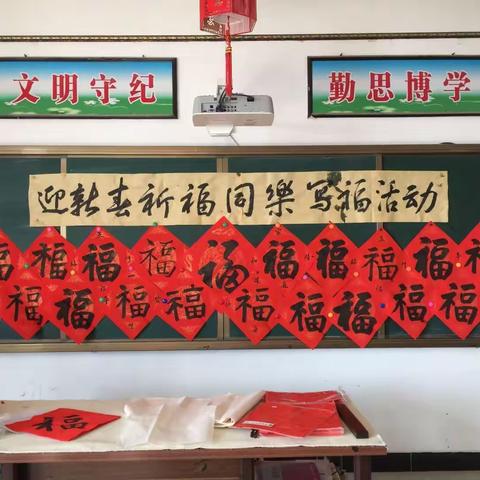 文明守纪
勤思博学
迎新春祈福同樂写福活动
福福福福福福福福福福
福福福福福福福福福福
福